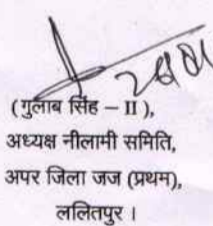 (गुलाब सिंह – II ),
अध्यक्ष नीलामी समिति,
अपर जिला जज (प्रथम),
ललितपुर ।